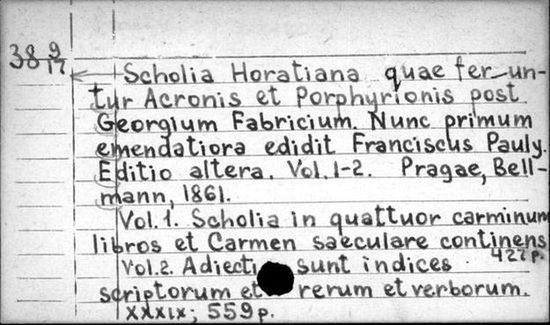 38 9/17
Scholia Horatiana quae ferun-
tur Acronis et Porphyrionis post
Georgium Fabricium. Nunc primum
emendatiora edidit Franciscus Pauly.
Editio altera. Vol. 1-2. Pragae, Bell-
mann, 1861.
Vol. 1. Scholia in quattuor carminum
libros et Carmen saeculare continens
422 p.
Vol. 2. Adiecti sunt indices
scriptorum et rerum et verborum.
XXXIX; 559 p.